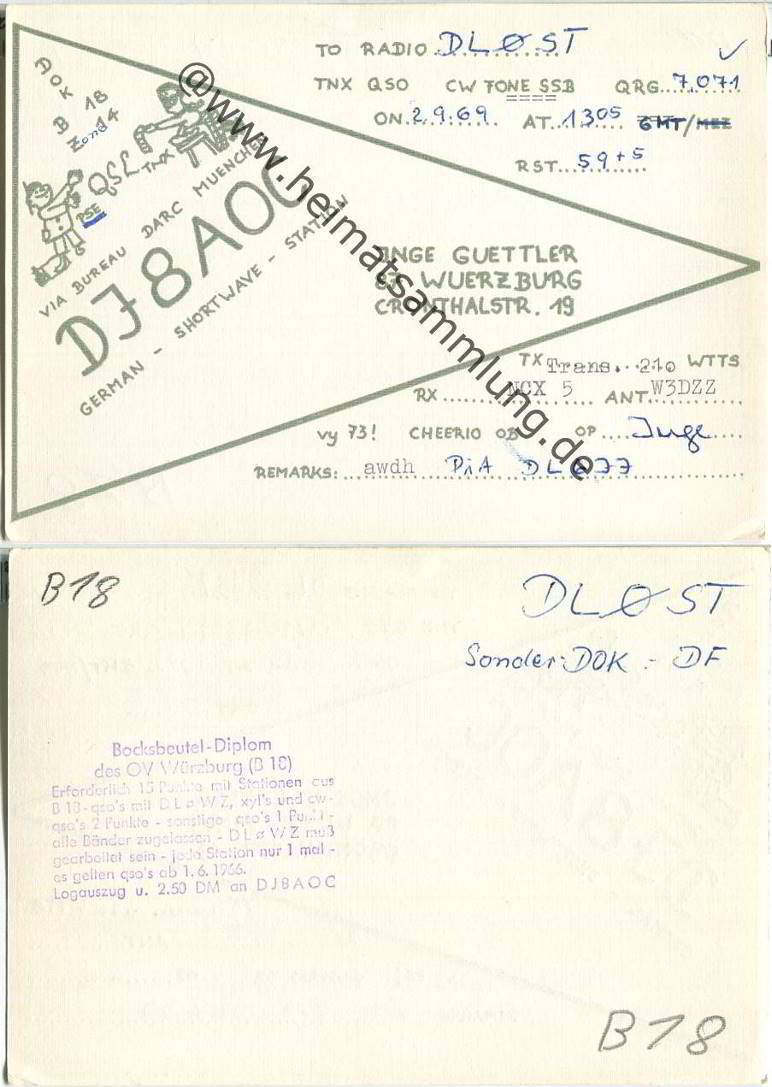 TO RADIO DLØST
TNX QSO CW FONE SSB QRG 7,071
ON 2.9.69 AT 1305 GMT/MEZ
RST 59+5
B 18
QSL TNX
PSE
VIA BUREAU DARC MUENCHEN
DJ8AOC
GERMAN - SHORTWAVE - STATION
INGE GUETTLER
87 WUERZBURG
CRONTHALSTR. 19
TX Trans. 210 WTTS
RX NCX 5 ANT W3DZZ
vy 73! CHEERIO OB OP Inge
REMARKS: awdh
@www.heimatsammlung.de
B18
DLØST
Sonder-DOK - DF
Bocksbeutel-Diplom
des OV Würzburg (B 18)
Erforderlich 15 Punkte mit Stationen aus
B 18-qso's mit D L ø W Z, xyl's und cw-
qso's 2 Punkte - sonstige qso's 1 Punkt -
alle Bänder zugelassen - D L ø W Z muß
gearbeitet sein - jede Station nur 1 mal -
es gelten qso's ab 1.6.1966.
Logauszug u. 2.50 DM an DJ8AOC
B18